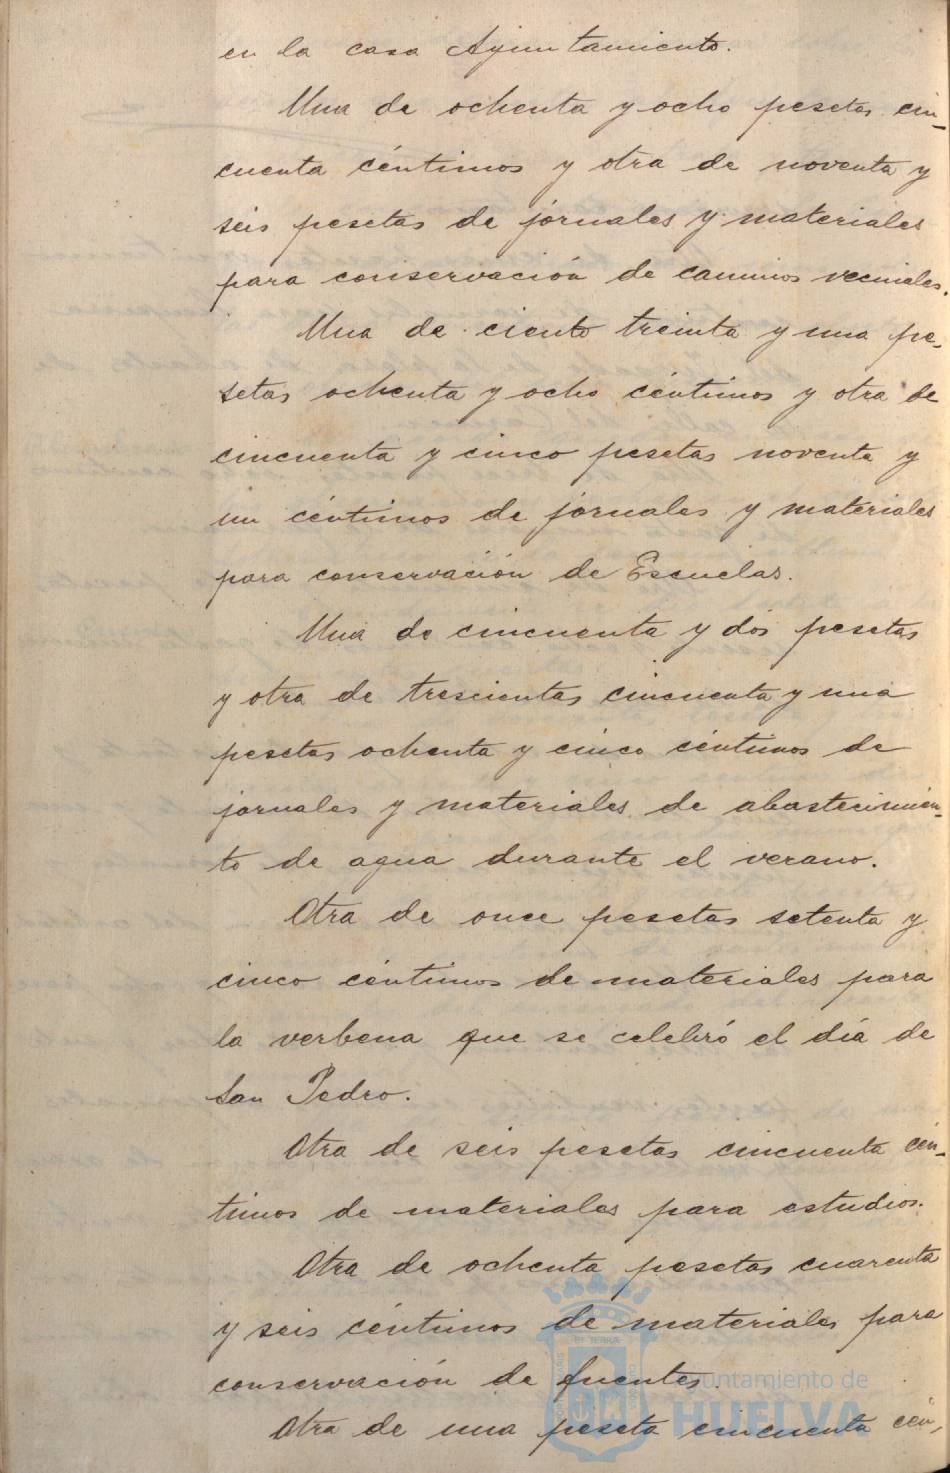 en la casa Ayuntamiento.
Una de ochenta y ocho pesetas cin-
cuenta céntimos y otra de noventa y
seis pesetas de jornales y materiales
para conservación de caminos vecinales.
Una de ciento treinta y una pe-
setas ochenta y ocho céntimos y otra de
cincuenta y cinco pesetas noventa y
un céntimos de jornales y materiales
para conservación de Escuelas.
Una de cincuenta y dos pesetas
y otra de trescientas cincuenta y una
pesetas ochenta y cinco céntimos de
jornales y materiales de abastecimien-
to de agua durante el verano.
Otra de once pesetas setenta y
cinco céntimos de materiales para
la verbena que se celebró el día de
San Pedro.
Otra de seis pesetas cincuenta cén-
timos de materiales para estudios.
Otra de ochenta pesetas cuarenta
y seis céntimos de materiales para
conservación de fuentes.
Otra de una peseta cincuenta cén-
Ayuntamiento de
HUELVA